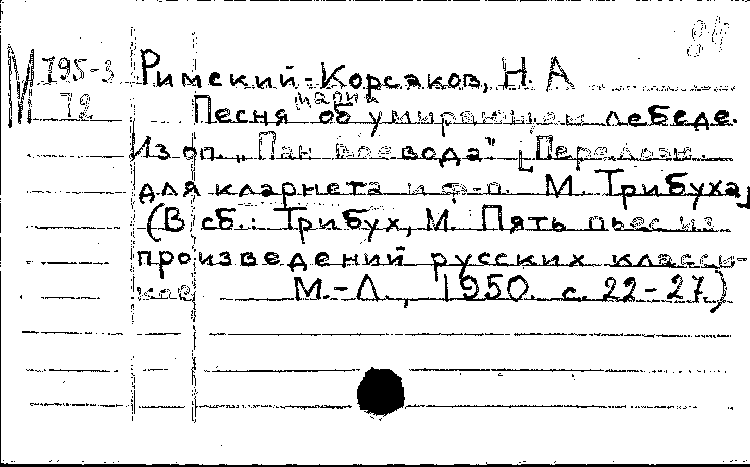 84
М 795-3 Римский-Корсаков, Н. А
72 Песня Марии об умирающем лебеде.
Из оп. „Пан Воевода" [Перелож.
для кларнета и ф-п. М. Трибуха]
(В сб.: Трибух, М. Пять пьес из
произведений русских класси-
ков М.-Л., 1950. с. 22-27.)